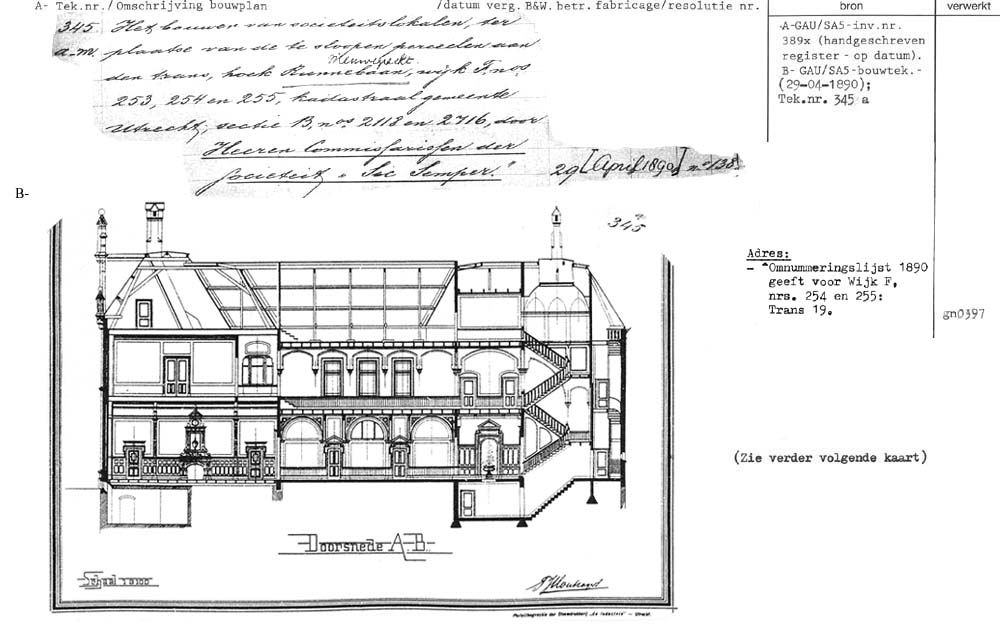 A- Tek.nr./Omschrijving bouwplan /datum verg. B&W. betr. fabricage/resolutie nr. bron verwerkt
345 Het bouwen van societeitslokalen, ter
a-m. plaatse van de te sloopen perceelen aan
Nieuwegracht.
den trans, hoek Runnebaan, wijk F. nos
253, 254 en 255, kadastraal gemeente
Utrecht, sectie B, nos 2118 en 2716, door
Heeren Commissarissen der
societeit "Sic Semper."
29 [April 1890] no 138
A-GAU/SA5-inv.nr.
389x (handgeschreven
register - op datum).
B- GAU/SA5-bouwtek.-
(29-04-1890);
Tek.nr. 345 a
B-
345
Adres:
- "Omnummeringslijst 1890
geeft voor Wijk F,
nrs. 254 en 255:
Trans 19.
gn0397
(Zie verder volgende kaart)
Doorsnede A.B.
Schaal 1 à 100
Photolithographie der Steendrukkerij „de Industrie" — Utrecht.